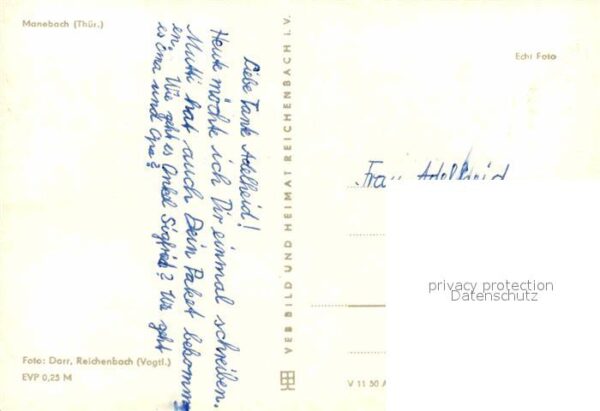 Manebach (Thür.)
Liebe Tante Adelheid!
Heute möchte ich Dir einmal schreiben.
Mutti hat auch Dein Paket bekomm
en. Wie geht es Onkel Siegfried? Wie geht
es Oma und Opa?
Foto: Dorr, Reichenbach (Vogtl.)
EVP 0,25 M
VEB BILD UND HEIMAT REICHENBACH i. V.
Echt Foto
Frau Adelheid
privacy protection
Datenschutz
V 11 50 A